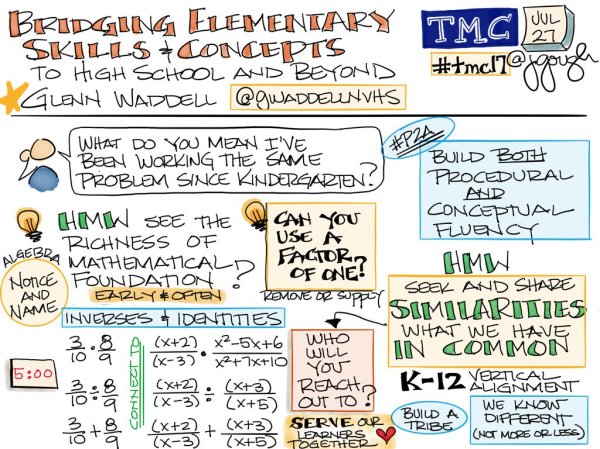 BRIDGING ELEMENTARY
SKILLS & CONCEPTS
TO HIGH SCHOOL AND BEYOND
GLENN WADDELL @gwaddellnvhs
TMC
JUL
27
#tmc17 @jgough
WHAT DO YOU MEAN I'VE
BEEN WORKING THE SAME
PROBLEM SINCE KINDERGARTEN?
#P2A
BUILD BOTH
PROCEDURAL
AND
CONCEPTUAL
FLUENCY
HMW SEE THE
RICHNESS OF
MATHEMATICAL
FOUNDATION?
EARLY & OFTEN
ALGEBRA
NOTICE
AND
NAME
CAN YOU
USE A
FACTOR
OF ONE?
REMOVE OR SUPPLY
HMW
SEEK AND SHARE
SIMILARITIES
WHAT WE HAVE
IN COMMON
INVERSES & IDENTITIES
5:00
3/10 · 8/9
3/10 ÷ 8/9
3/10 + 8/9
CONNECT TO
(x+2)/(x-3) · x²-5x+6/x²+7x+10
(x+2)/(x-3) ÷ (x+3)/(x+5)
(x+2)/(x-3) + (x+3)/(x+5)
WHO
WILL
YOU
REACH
OUT TO?
SERVE OUR
LEARNERS
TOGETHER
K-12 VERTICAL
ALIGNMENT
BUILD A
TRIBE
WE KNOW
DIFFERENT
(NOT MORE OR LESS)